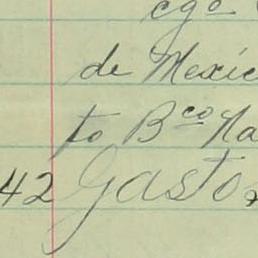 cgo
de Mexic
to Bco Na
42 Gastos